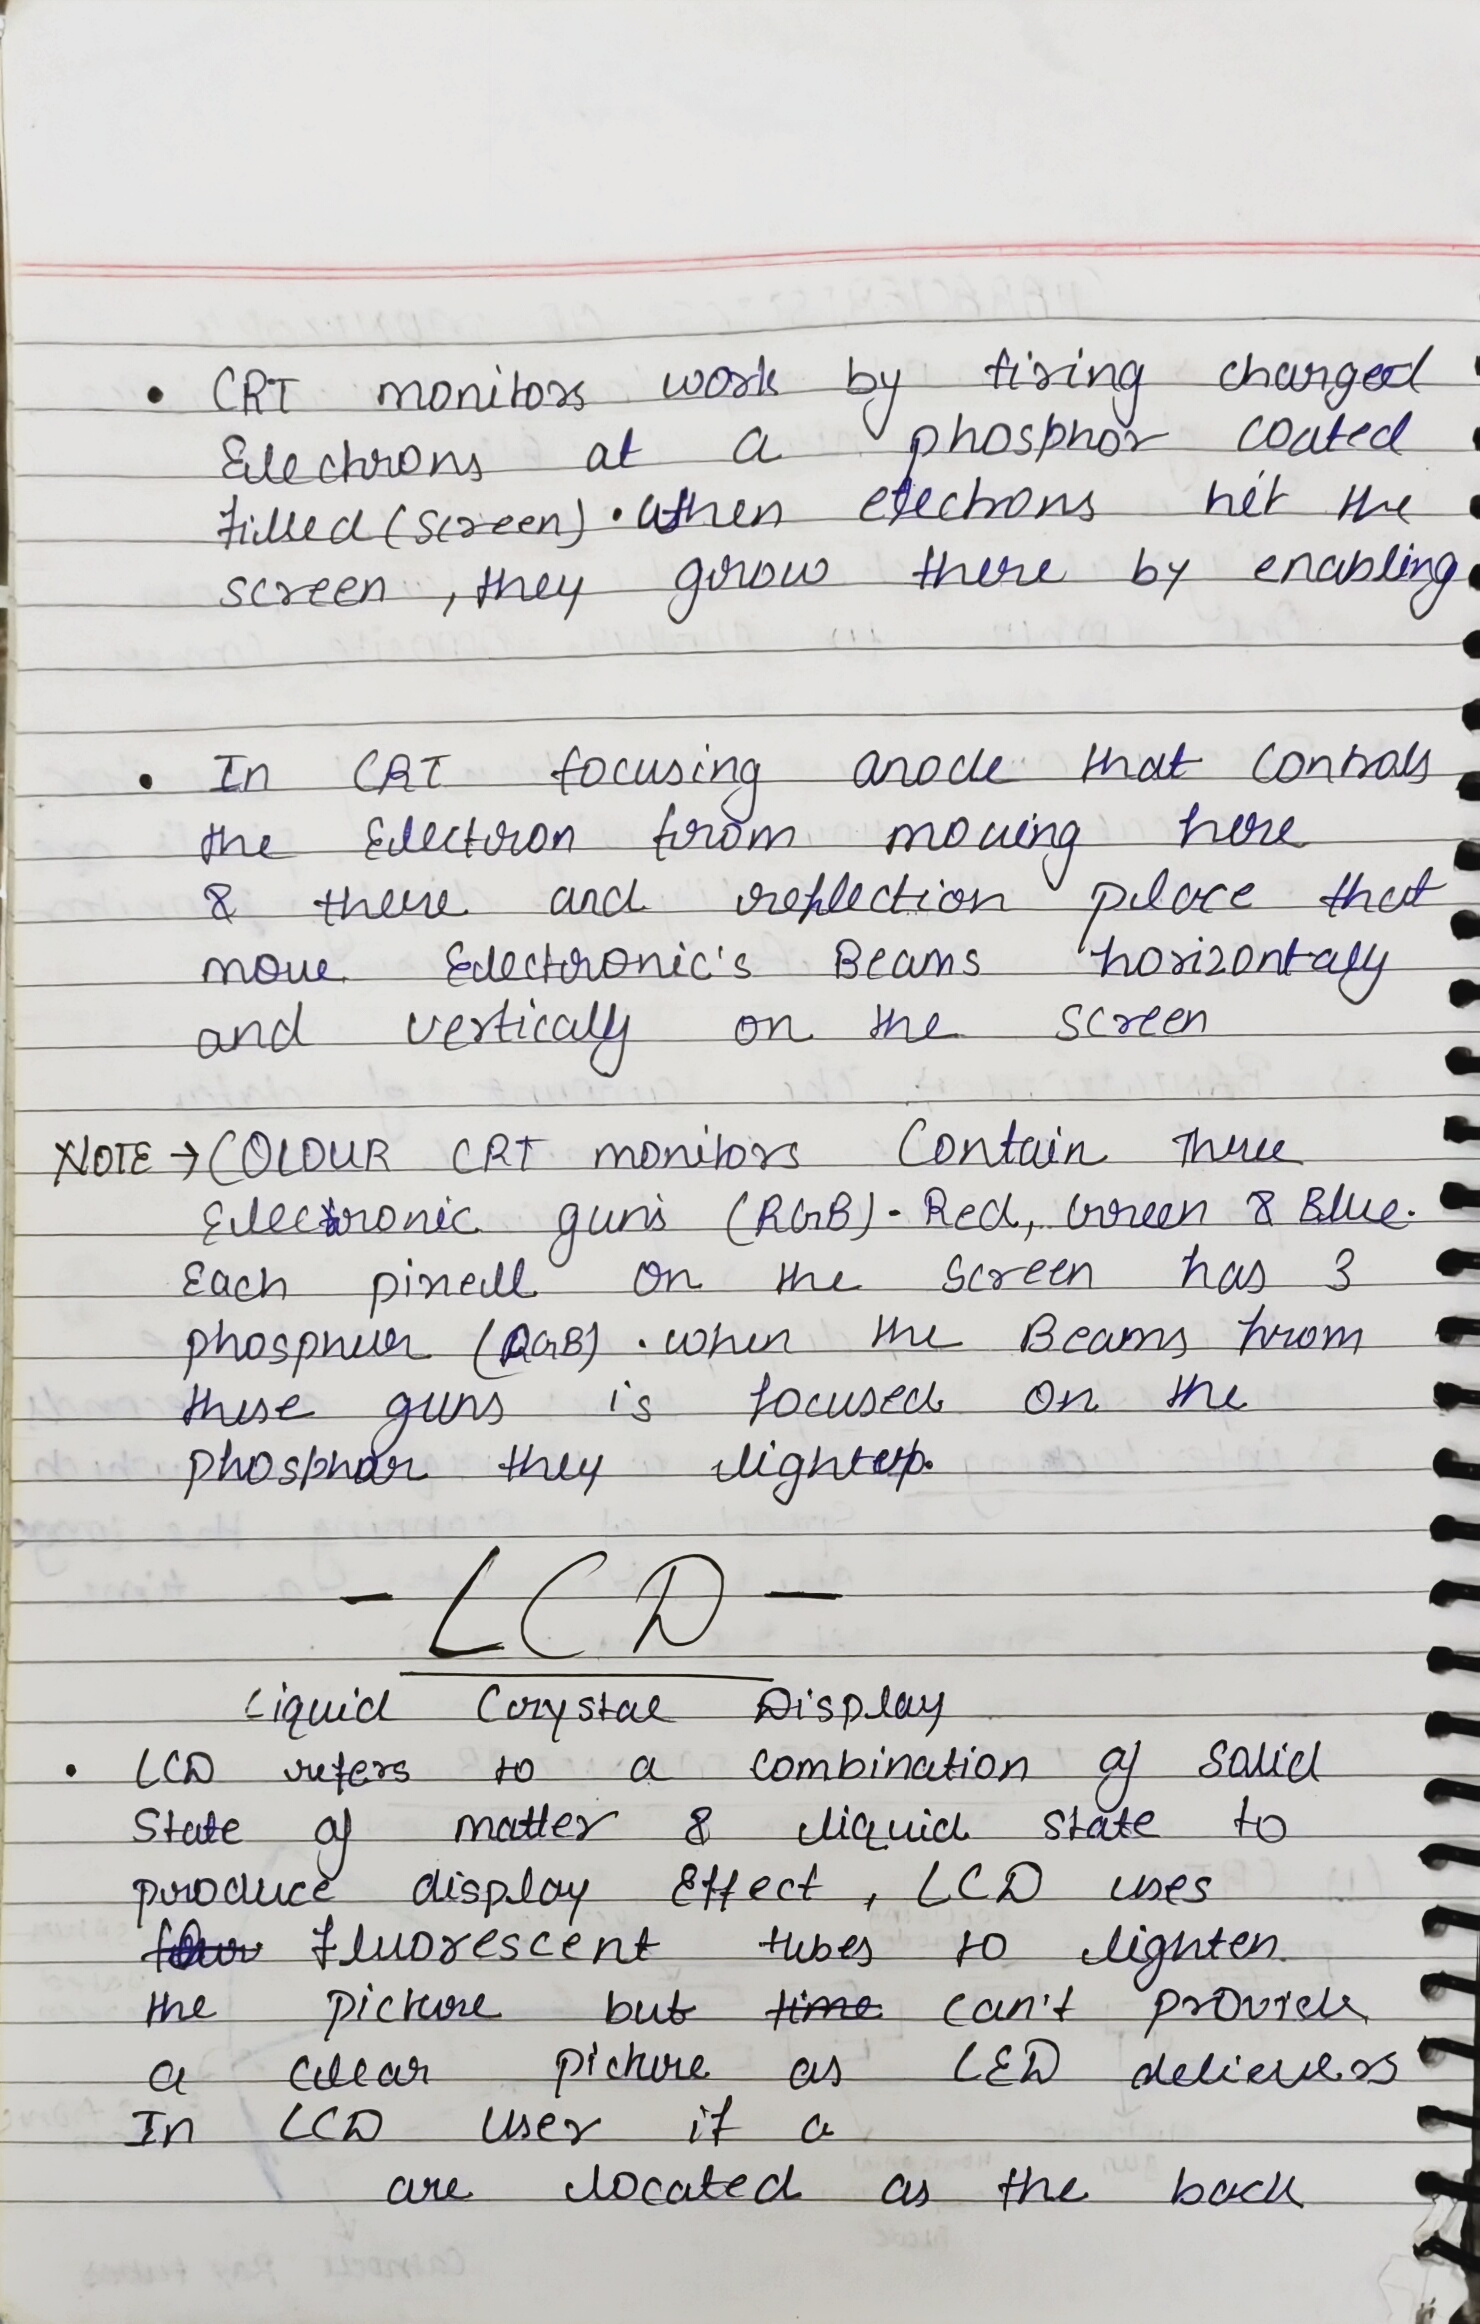 • CRT monitors work by firing charged
Electrons at a phosphor coated
filled (screen) • when electrons hit the
screen, they grow there by enabling
• In CRT focusing anode that controls
the Electron from moving here
& there and reflection place that
move Electronic's Beams horizontaly
and vertically on the screen
NOTE → COLOUR CRT monitors Contain Three
Electronic guns (RGB) - Red, Green & Blue.
Each pixell on the screen has 3
phospheur (RGB) . when the Beams from
these guns is focused on the
phosphor they lightup.
- LCD -
Liquid Crystal Display
• LCD refers to a combination of Solid
State of matter & liquid state to
produce display Effect , LCD uses
fluorescent tubes to lighten
the picture but time can't provide
a clear picture as LED delievers
In LCD user if a
are located as the back